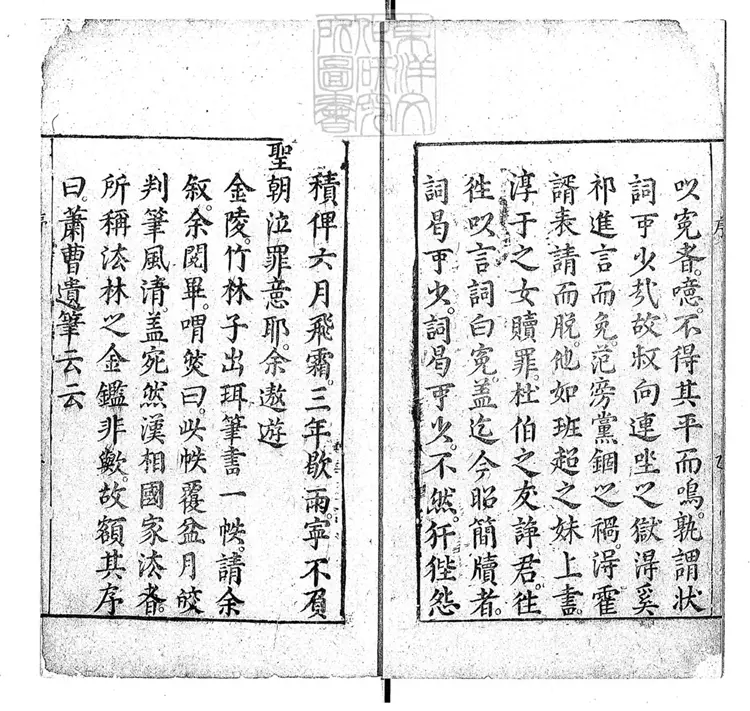 東洋文
化研究
所圖書
序
以寃者。噫。不得其平而鳴。孰謂狀
詞可少哉。故叔向連坐之獄得奚
祁進言而免。范滂黨錮之禍。得霍
諝表請而脫。他如班超之妹上書。
淳于之女贖罪。杜伯之友諍君。徃
徃以言詞白寃。盖迄今昭簡牘者。
詞曷可少。詞曷可少。不然。犴狴怨
積俾六月飛霜。三年歇雨。寧不負
聖朝泣罪意耶。余遨遊
金陵。竹林子出珥筆書一帙。請余
叙。余閱畢。喟然曰。此帙覆盆月皎
判筆風清。盖宛然漢相國家法者。
所稱法林之金鑑非歟。故額其序
曰。蕭曹遺筆云云